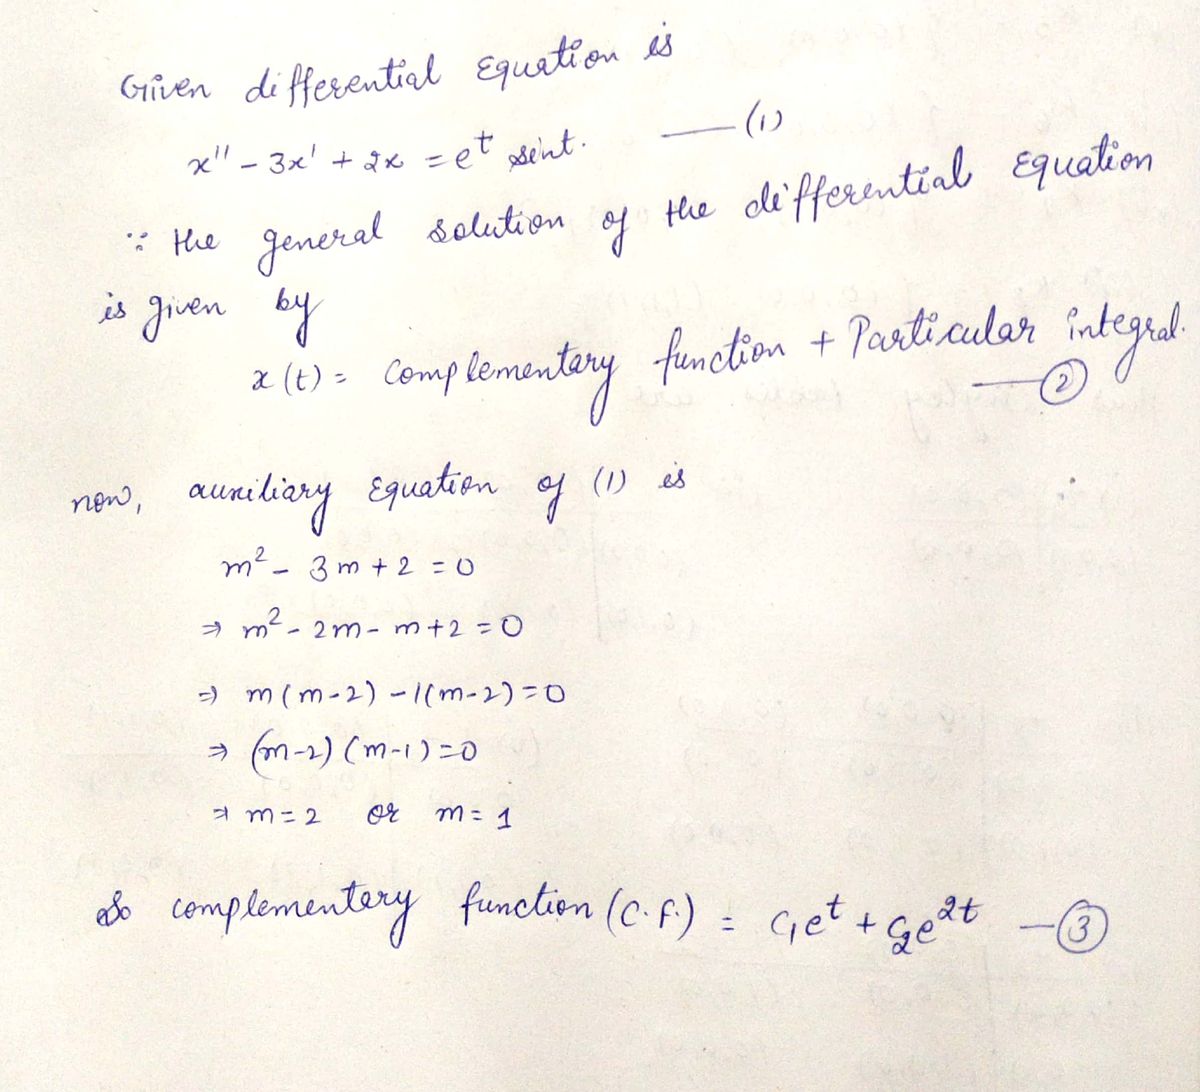 Given differential Equation is
x'' - 3x' + 2x = e^t sint. —(1)
∵ the general solution of the differential Equation
is given by
x(t) = Complementary function + Particular integral.
—②
now, auxiliary Equation of (1) is
m² - 3m + 2 = 0
⇒ m² - 2m - m + 2 = 0
⇒ m(m-2) - 1(m-2) = 0
⇒ (m-2)(m-1) = 0
⇒ m = 2 or m = 1
So complementary function (C.F.) = C₁e^t + C₂e^2t —③